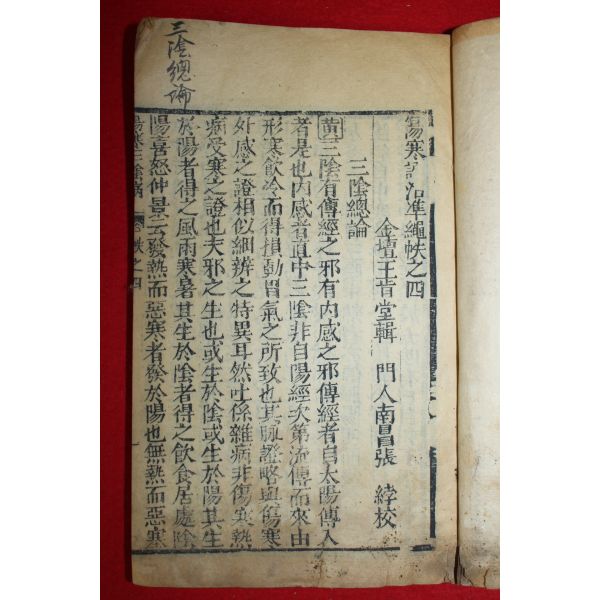 三陰總論
傷寒証治準繩帙之四
金壇王肯堂輯 門人南昌張 綍校
三陰總論
黃三陰有傳經之邪有內感之邪傳經者自太陽傳入
者是也內感者直中三陰非自陽經次第流傳而來由
形寒飲冷而得損動胃氣之所致也其脉證略與傷寒
外感之證相似細辨之特異耳然吐係雜病非傷寒熱
病受寒之證也夫邪之生也或生於陰或生於陽其生
於陽者得之風雨寒暑其生於陰者得之飲食居處陰
陽喜怒仲景云發熱而惡寒者發於陽也無熱而惡寒
傷寒三陰病 帙之四